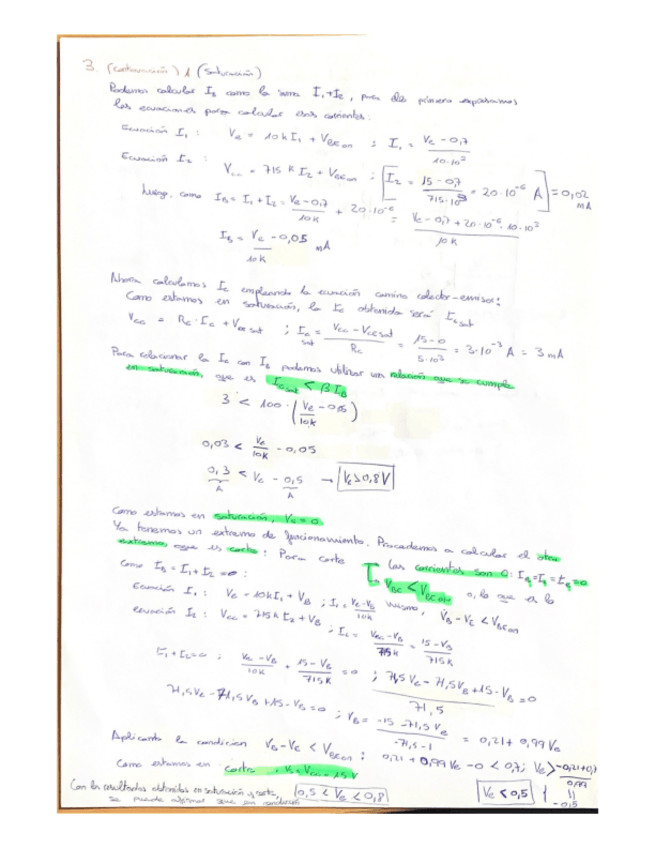 3. (continuación) 1 (Saturación)
Podemos calcular IB como la suma I1+I2, para ello primero expresamos
las ecuaciones para calcular esas corrientes:
Ecuación I1: Ve = 10k I1 + VBEon ; I1 = (Ve - 0,7)/(10·10³)
Ecuación I2: Vcc = 715 K I2 + VBEon ; [I2 = (15 - 0,7)/(715·10³) = 20·10⁻⁶ A] = 0,02 mA
luego, como IB = I1 + I2 = (Ve - 0,7)/10K + 20·10⁻⁶ = (Ve - 0,7 + 20·10⁻⁶·10·10³)/10K
IB = Ve/10K - 0,05 mA
Ahora calculamos Ic empleando la ecuación camino colector-emisor:
Como estamos en saturación, la Ic obtenida será Icsat
Vcc = Rc·Ic + Vcesat ; Icsat = (Vcc - Vcesat)/Rc = (15-0)/(5·10³) = 3·10⁻³ A = 3 mA
Para relacionar la Ic con IB podemos utilizar una relación que se cumple
en saturación, que es Icsat < β IB
3 < 100 · (Ve/10k - 0,05)
0,03 < Ve/10k - 0,05
0,3 < Ve - 0,5 → Ve > 0,8 V
A A
Como estamos en saturación, Vs = 0.
Ya tenemos un extremo de funcionamiento. Procedemos a calcular el otro
extremo, que es corte: Para corte las corrientes son 0: IB = Ic = IE = 0
Como IB = I1 + I2 = 0: VBE < VBEon o, lo que es lo
Ecuación I1: Ve = 10k I1 + VB ; I1 = (Ve - VB)/10k mismo, VB - VE < VBEon
ecuación I2: Vcc = 715k I2 + VB ; I2 = (Vcc - VB)/715k = (15 - VB)/715k
I1 + I2 = 0 ; (Ve - VB)/10k + (15 - VB)/715k = 0 ; (71,5Ve - 71,5VB + 15 - VB)/71,5 = 0
71,5Ve - 71,5VB + 15 - VB = 0 ; VB = (-15 - 71,5Ve)/(-71,5 - 1) = 0,21 + 0,99 Ve
Aplicando la condicion VB - VE < VBEon: 0,21 + 0,99 Ve - 0 < 0,7; Ve > (-0,21+0,7)/0,99
Como estamos en corte, Vs = Vcc = 15V
Ve < 0,5 = 0,5
Con los resultados obtenidos en saturación y corte, 0,5 < Ve < 0,8
se puede